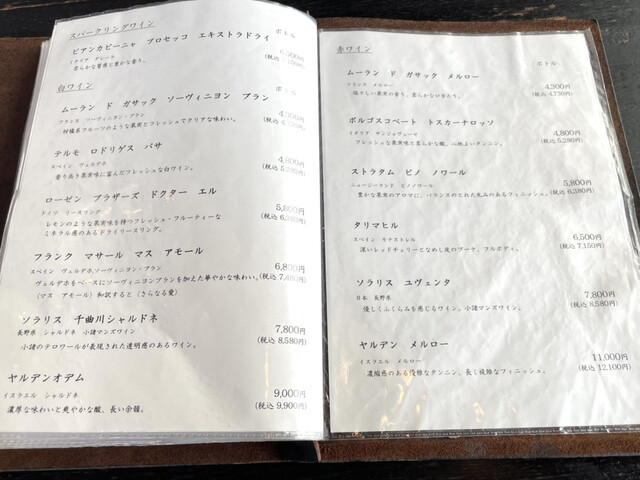 スパークリングワイン
ボトル
ビアンカビーニャ プロセッコ エキストラドライ
イタリア グレーラ
柔らかな質感と豊かな香り。
白ワイン
ボトル
ムーラン ド ガサック ソーヴィニヨン ブラン
4,300円
フランス ソーヴィニヨン・ブラン
柑橘系フルーツのような果実とフレッシュでクリアな味わい。
テルモ ロドリゲス バサ
4,800円
スペイン ヴェルデホ
(税込 5,280円)
香り高く果実味に富んだフレッシュな白ワイン。
ローゼン ブラザーズ ドクター エル
5,800円
ドイツ リースリング
(税込 6,380円)
レモンのような果実味を持つフレッシュ・フルーティーな
ミネラル感のあるドライリースリング。
フランク マサール マス アモール
6,800円
スペイン ヴェルデホ,ソーヴィニヨン・ブラン
(税込 7,480円)
ヴェルデホをベースにソーヴィニヨンブランを加えた華やかな味わい。
(マス アモール)和訳すると(さらなる愛)
ソラリス 千曲川シャルドネ
7,800円
長野県 シャルドネ 小諸マンズワイン
(税込 8,580円)
小諸のテロワールが表現された透明感のあるワイン。
ヤルデンオデム
9,000円
イスラエル シャルドネ
(税込 9,900円)
濃厚な味わいと爽やかな酸、長い余韻。
赤ワイン
ボトル
ムーラン ド ガサック メルロー
4,300円
フランス メルロー
(税込 4,730円)
瑞々しい果実の香り、柔らかな口当たり。
ボルゴスコペート トスカーナロッソ
4,800円
イタリア サンジョヴェーゼ
(税込 5,280円)
フレッシュな果実味と柔らかな酸、心地よいタンニン。
ストラタム ピノ ノワール
5,800円
ニュージーランド ピノノワール
(税込 6,380円)
豊かな果実のアロマに、バランスのとれた丸みのあるフィニッシュ。
タリマヒル
6,500円
スペイン モナストレル
(税込 7,150円)
深いレッドチェリーとなめし皮のブーケ、フルボディ。
ソラリス ユヴェンタ
7,800円
日本 長野県
(税込 8,580円)
優しくふくらみを感じるワイン。小諸マンズワイン。
ヤルデン メルロー
11,000円
イスラエル メルロー
(税込 12,100円)
濃縮感のある優雅なタンニン、長く複雑なフィニッシュ。